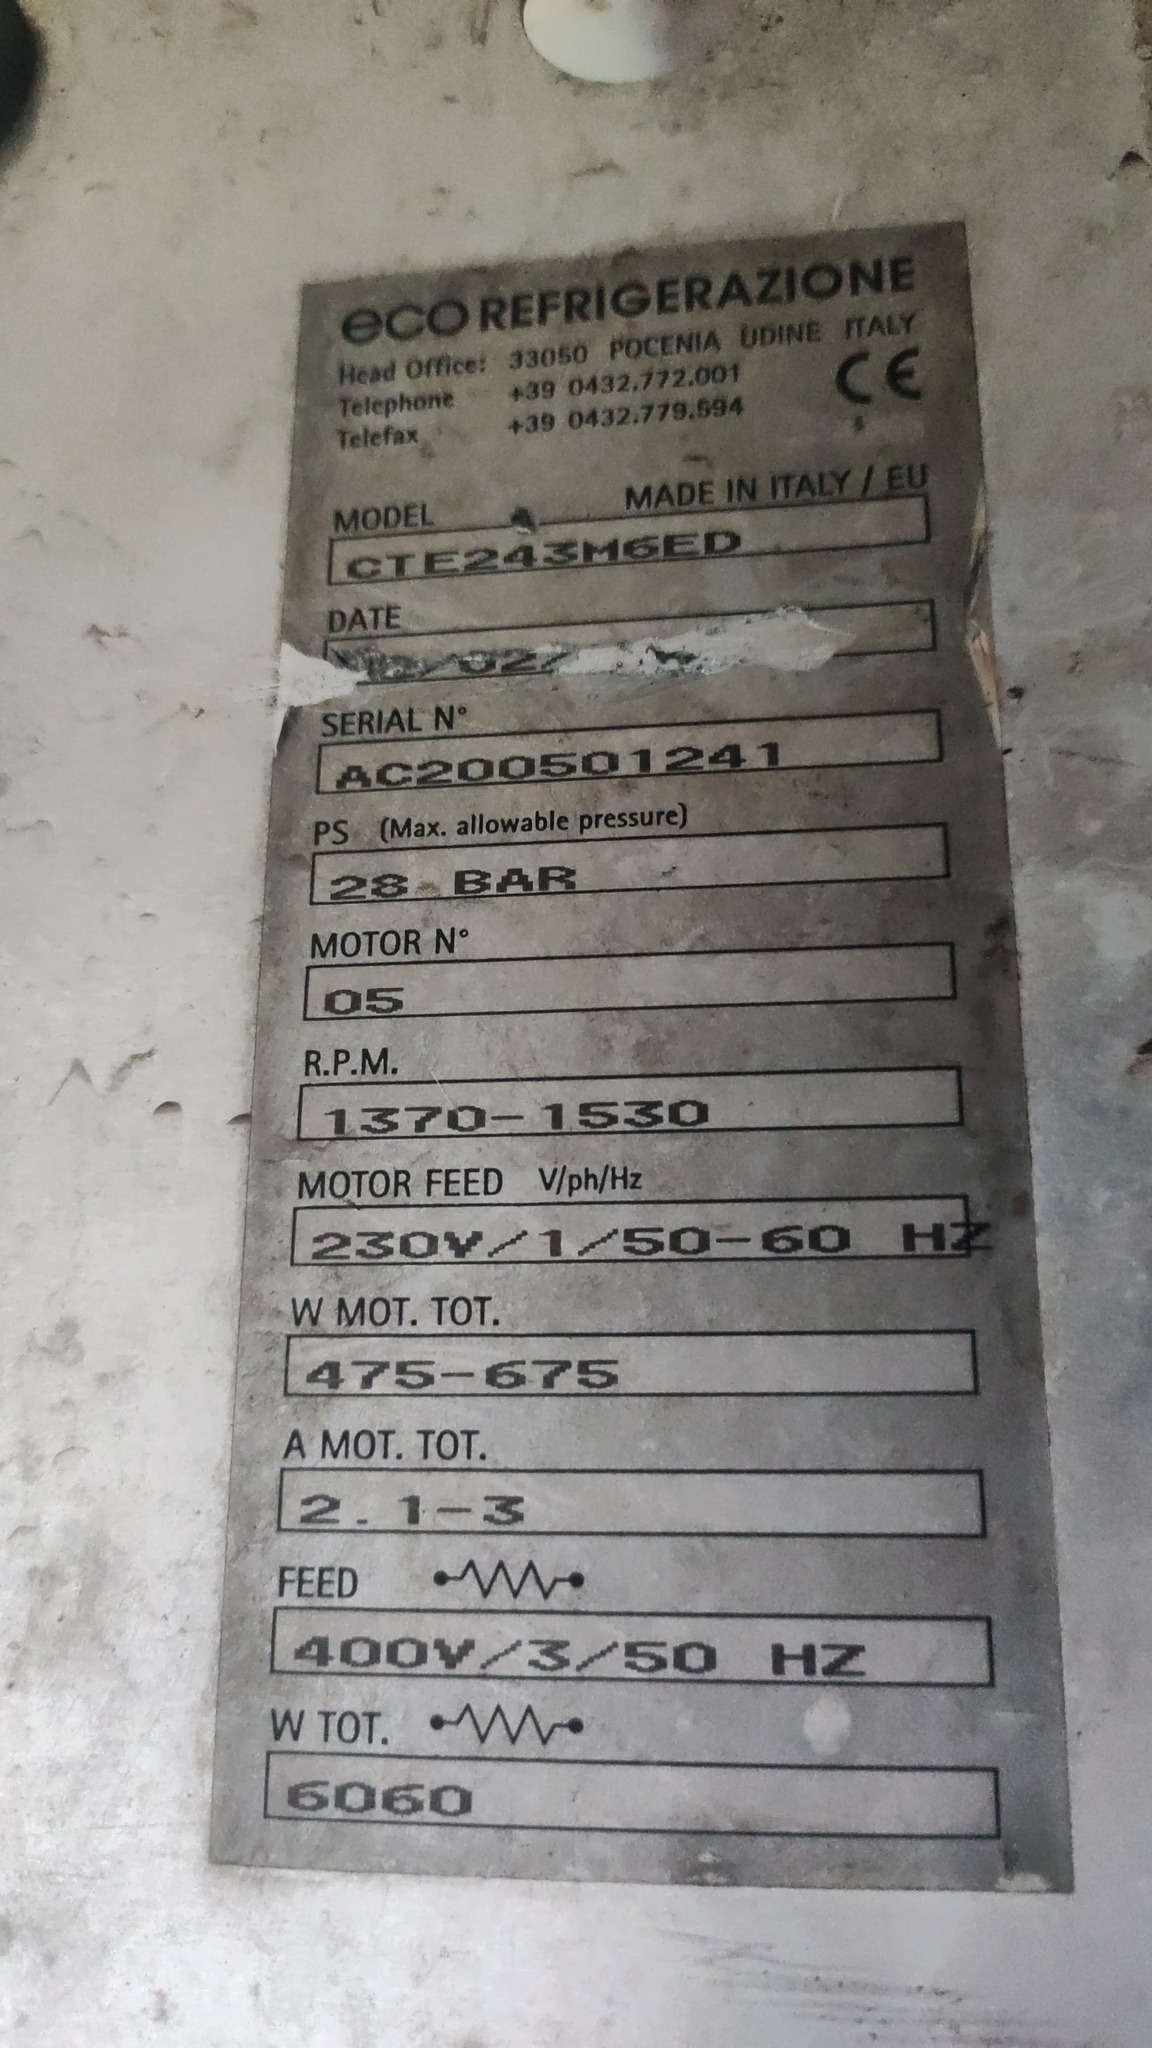 eCO REFRIGERAZIONE
Head Office: 33050 POCENIA UDINE ITALY
Telephone +39 0432.772.001
Telefax +39 0432.779.594
CE
MADE IN ITALY / EU
MODEL
CTE243M6ED
DATE
/02/
SERIAL N°
AC200501241
PS (Max. allowable pressure)
28 BAR
MOTOR N°
05
R.P.M.
1370-1530
MOTOR FEED V/ph/Hz
230V/1/50-60 HZ
W MOT. TOT.
475-675
A MOT. TOT.
2.1-3
FEED
400V/3/50 HZ
W TOT.
6060